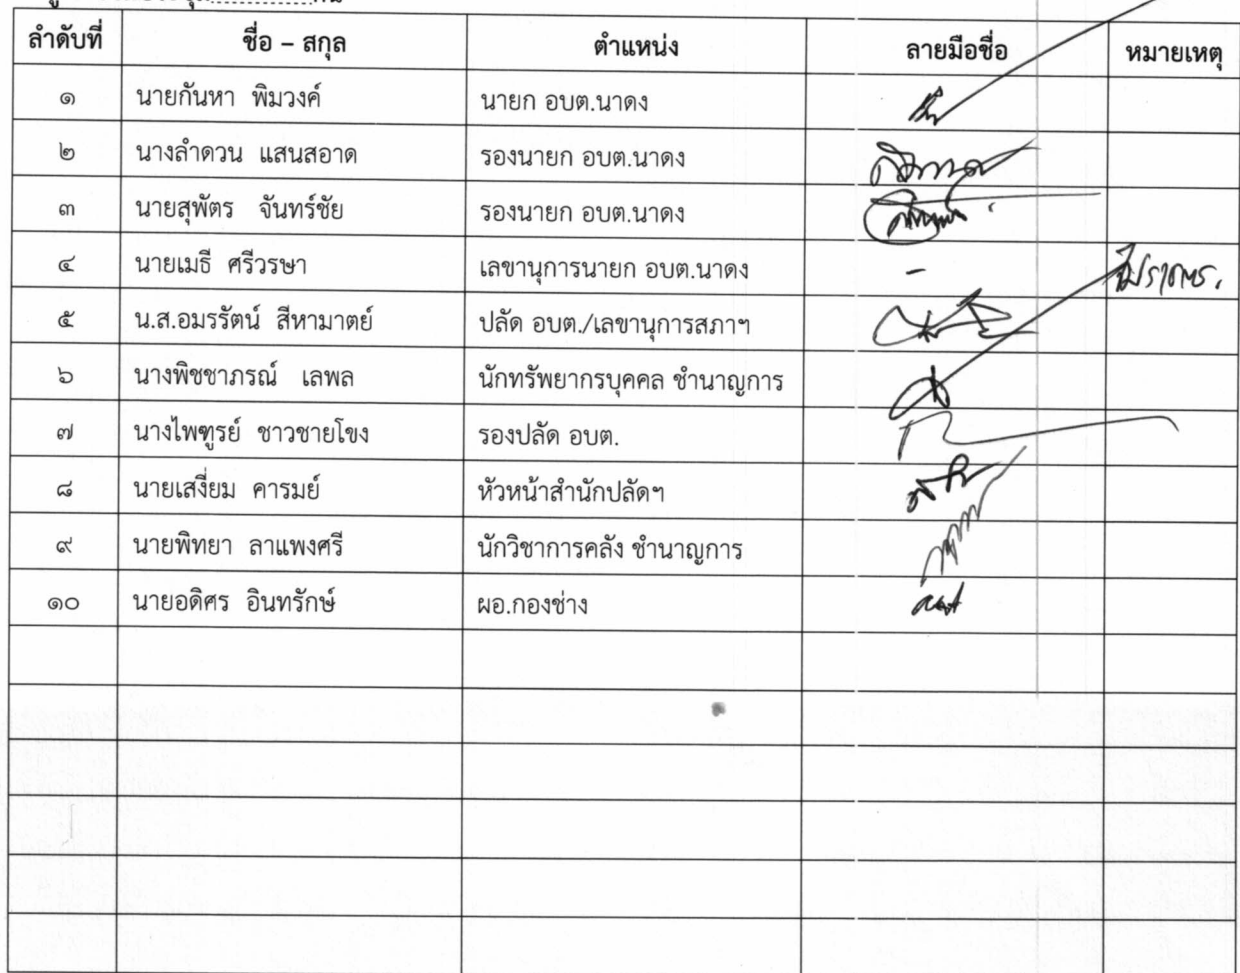 ลำดับที่ ชื่อ – สกุล ตำแหน่ง ลายมือชื่อ หมายเหตุ
๑ นายกันหา พิมวงค์ นายก อบต.นาดง
๒ นางลำดวน แสนสอาด รองนายก อบต.นาดง
๓ นายสุพัตร จันทร์ชัย รองนายก อบต.นาดง
๔ นายเมธี ศรีวรษา เลขานุการนายก อบต.นาดง – ไปราชการ.
๕ น.ส.อมรรัตน์ สีหามาตย์ ปลัด อบต./เลขานุการสภาฯ
๖ นางพิชชาภรณ์ เลพล นักทรัพยากรบุคคล ชำนาญการ
๗ นางไพฑูรย์ ชาวชายโขง รองปลัด อบต.
๘ นายเสงี่ยม คารมย์ หัวหน้าสำนักปลัดฯ
๙ นายพิทยา ลาแพงศรี นักวิชาการคลัง ชำนาญการ
๑๐ นายอดิศร อินทรักษ์ ผอ.กองช่าง